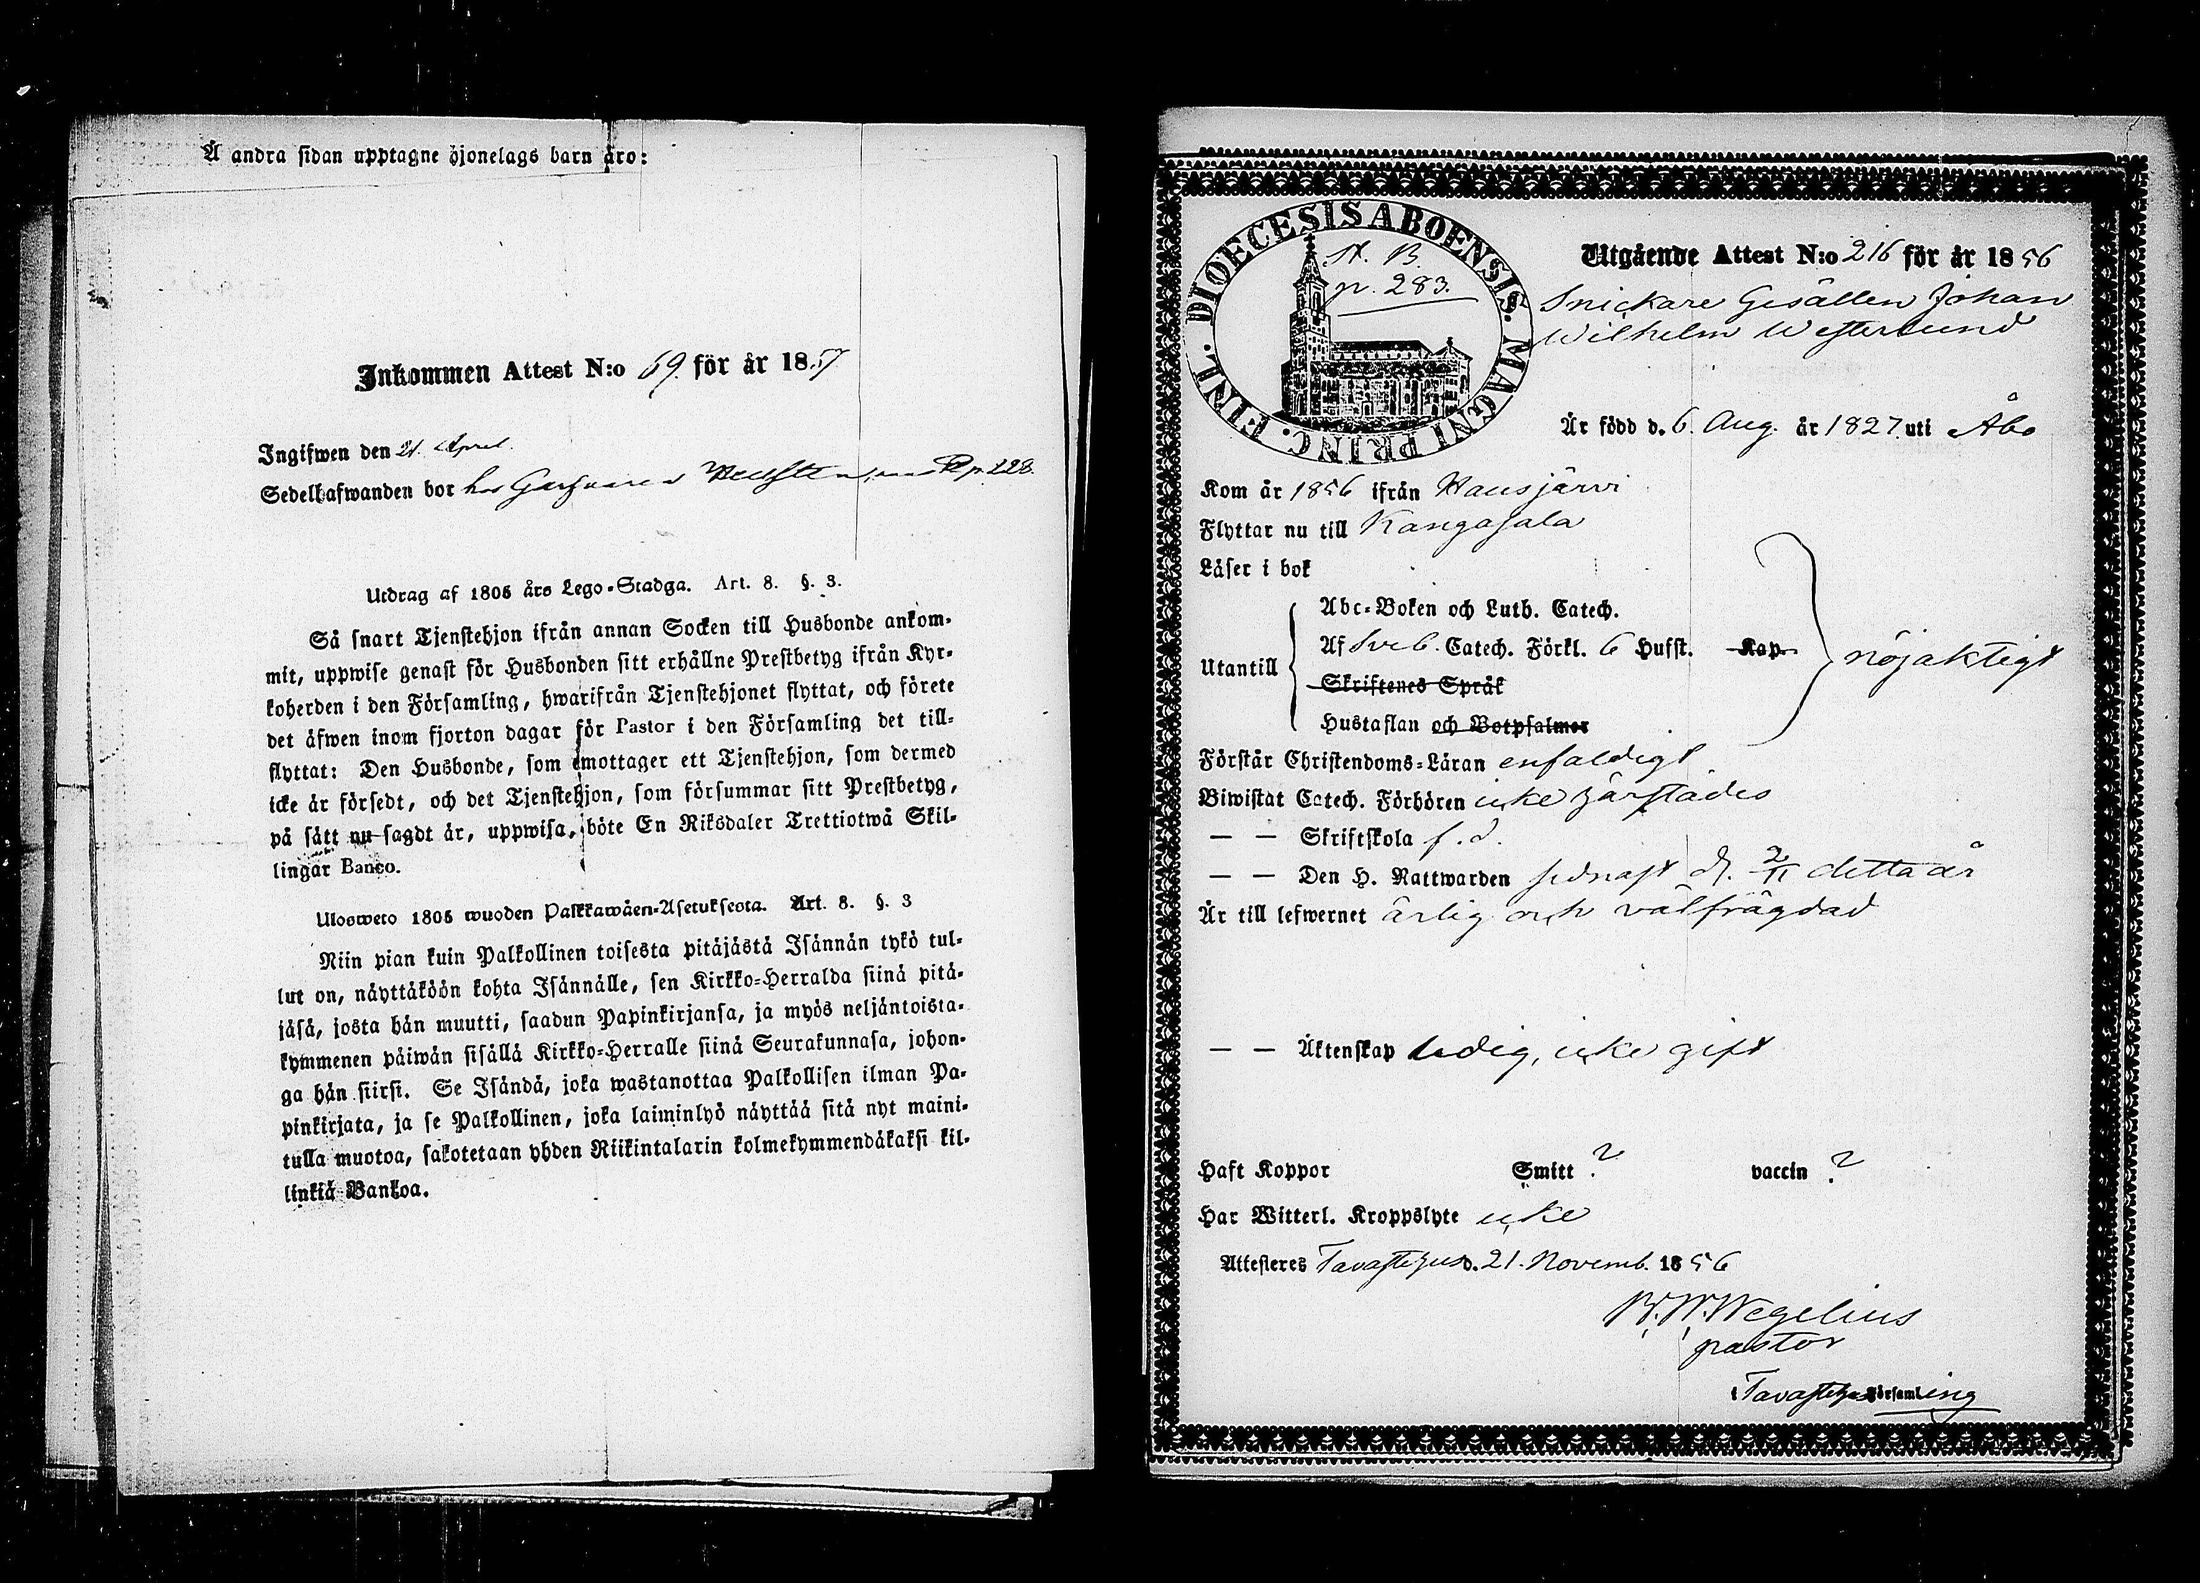 Å andra sidan upptagne hjonelags barn äro:
Inkommen Attest N:o 59. för år 1857
Ingifwen den 21. April.
Sedelhafwanden bor hos Garfvaren
p. 228.
Utdrag af 1805 års Lego-Stadga. Art. 8. §. 3.
Så snart Tjenstehjon ifrån annan Socken till Husbonde ankom-
mit, uppwise genast för Husbonden sitt erhållne Prestbetyg ifrån Kyr-
koherden i den Församling, hwarifrån Tjenstehjonet flyttat, och förete
det äfwen inom fjorton dagar för Pastor i den Församling det till-
flyttat: Den Husbonde, som emottager ett Tjenstehjon, som dermed
icke är försedt, och det Tjenstehjon, som försummar sitt Prestbetyg,
på sätt nu sagdt är, uppwisa, böte En Riksdaler Trettiotwå Skil-
lingar Banco.
Ulosweto 1805 wuoden Palkkawäen-Asetuksesta. Art. 8. §. 3
Niin pian kuin Palkollinen toisesta pitäjästä Isännän tykö tul-
lut on, näyttäköön kohta Isännälle, sen Kirkko-Herralda siinä pitä-
jäsä, josta hän muutti, saadun Papinkirjansa, ja myös neljäntoista-
kymmenen päiwän sisällä Kirkko-Herralle siinä Seurakunnasa, johon-
ga hän siirsi. Se Isändä, joka wastanottaa Palkollisen ilman Pa-
pinkirjata, ja se Palkollinen, joka laiminlyö näyttää sitä nyt maini-
tulla muotoa, sakotetaan yhden Riikintalarin kolmekymmendäkaksi kil-
linkiä Bankoa.
DIOECESIS ABOENSIS. MAGNI PRINC. FINL.
N. B.
p. 283.
Utgående Attest N:o 216 för år 1856
Snickare Gesällen Johan
Wilhelm Westerlund
Är född d. 6. Aug. år 1827 uti Åbo
Kom år 1856 ifrån Hausjärvi
Flyttar nu till Kangasala
Läser i bok
Utantill
Abc-Boken och Luth. Catech.
Af Sveb. Catech. Förkl. 6 Hufst. Kap.
Skriftenes Språk
Hustaflan och Botpsalmer
nöjaktigt
Förstår Christendoms-Läran enfaldigt
Biwistat Catech. Förhören icke härstädes
— — Skriftskola f. d.
— — Den H. Nattwarden sednast d. 2/11 detta år
Är till lefwernet ärlig och välfrägdad
— — Äktenskap ledig, icke gift
Haft Koppor Smitt ? vaccin ?
Har Witterl. Kroppslyte icke
Attesteres Tavastehus d. 21. Novemb. 1856
B. W. Wegelius
pastor
i Tavastehus Församling